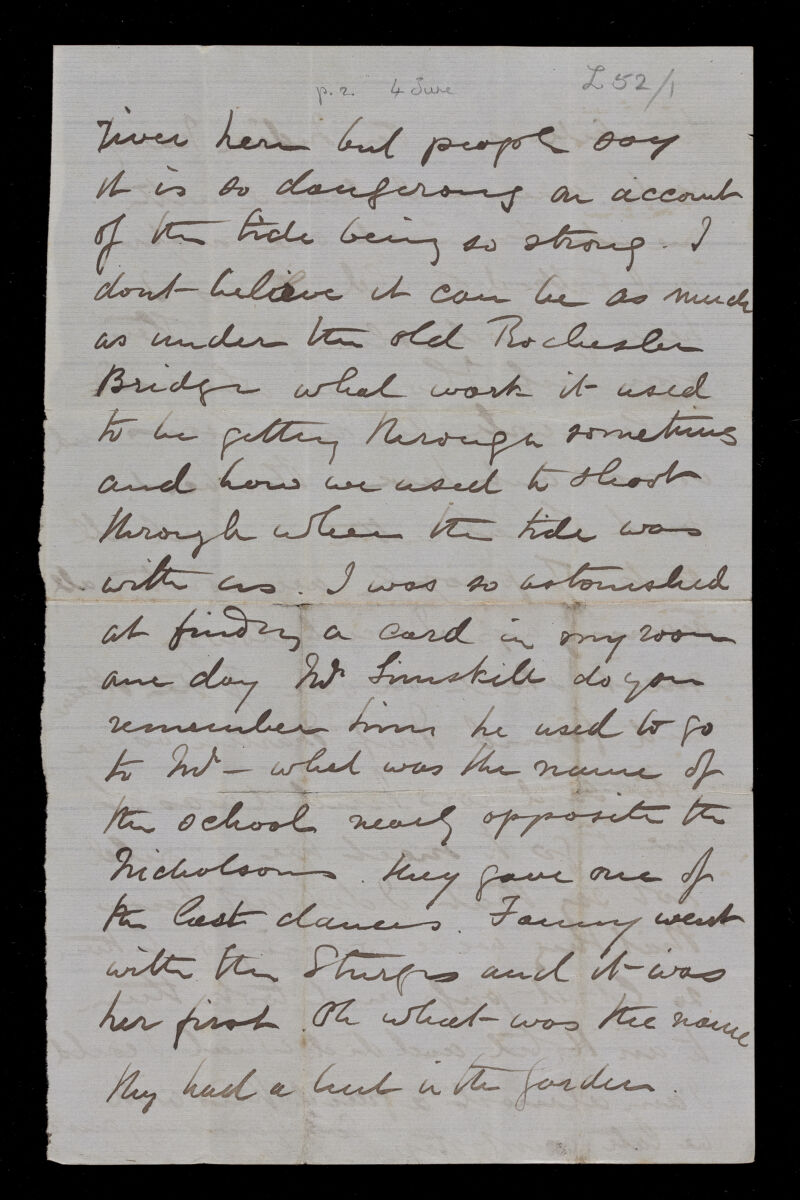 p. 2. 4 June L 52/1
river here but people say
it is so dangerous on account
of the tide being so strong. I
dont believe it can be as much
as under the old Rochester
Bridge what work it used
to be getting through sometimes
and how we used to shoot
through when the tide was
with us. I was so astonished
at finding a card in my room
one day Mr Linskill do you
remember him he used to go
to Mr - what was the name of
the school nearly opposite the
Nicholsons. they gave one of
the last dances. Fanny went
with the Sturges and it was
her first. Oh what was the name
they had a tent in the garden.